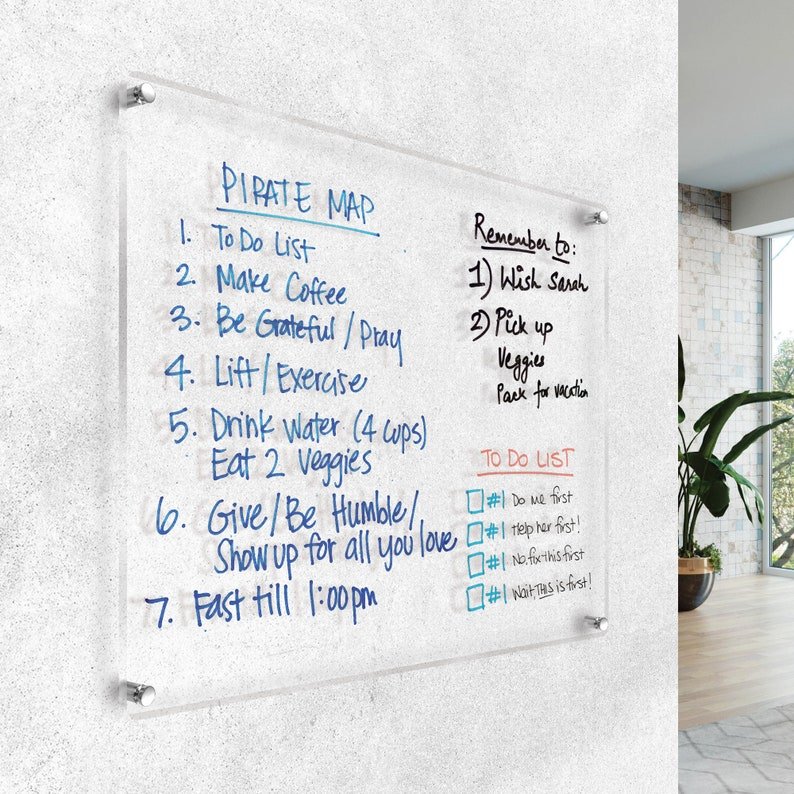 PIRATE MAP
1. To Do List
2. Make Coffee
3. Be Grateful / Pray
4. Lift / Exercise
5. Drink Water (4 cups)
Eat 2 Veggies
6. Give / Be Humble /
Show up for all you love
7. Fast till 1:00pm
Remember to:
1) Wish Sarah
2) Pick up
Veggies
Pack for vacation
TO DO LIST
#1 Do me first
#1 Help her first!
#1 No, fix this first
#1 Wait, THIS is first!